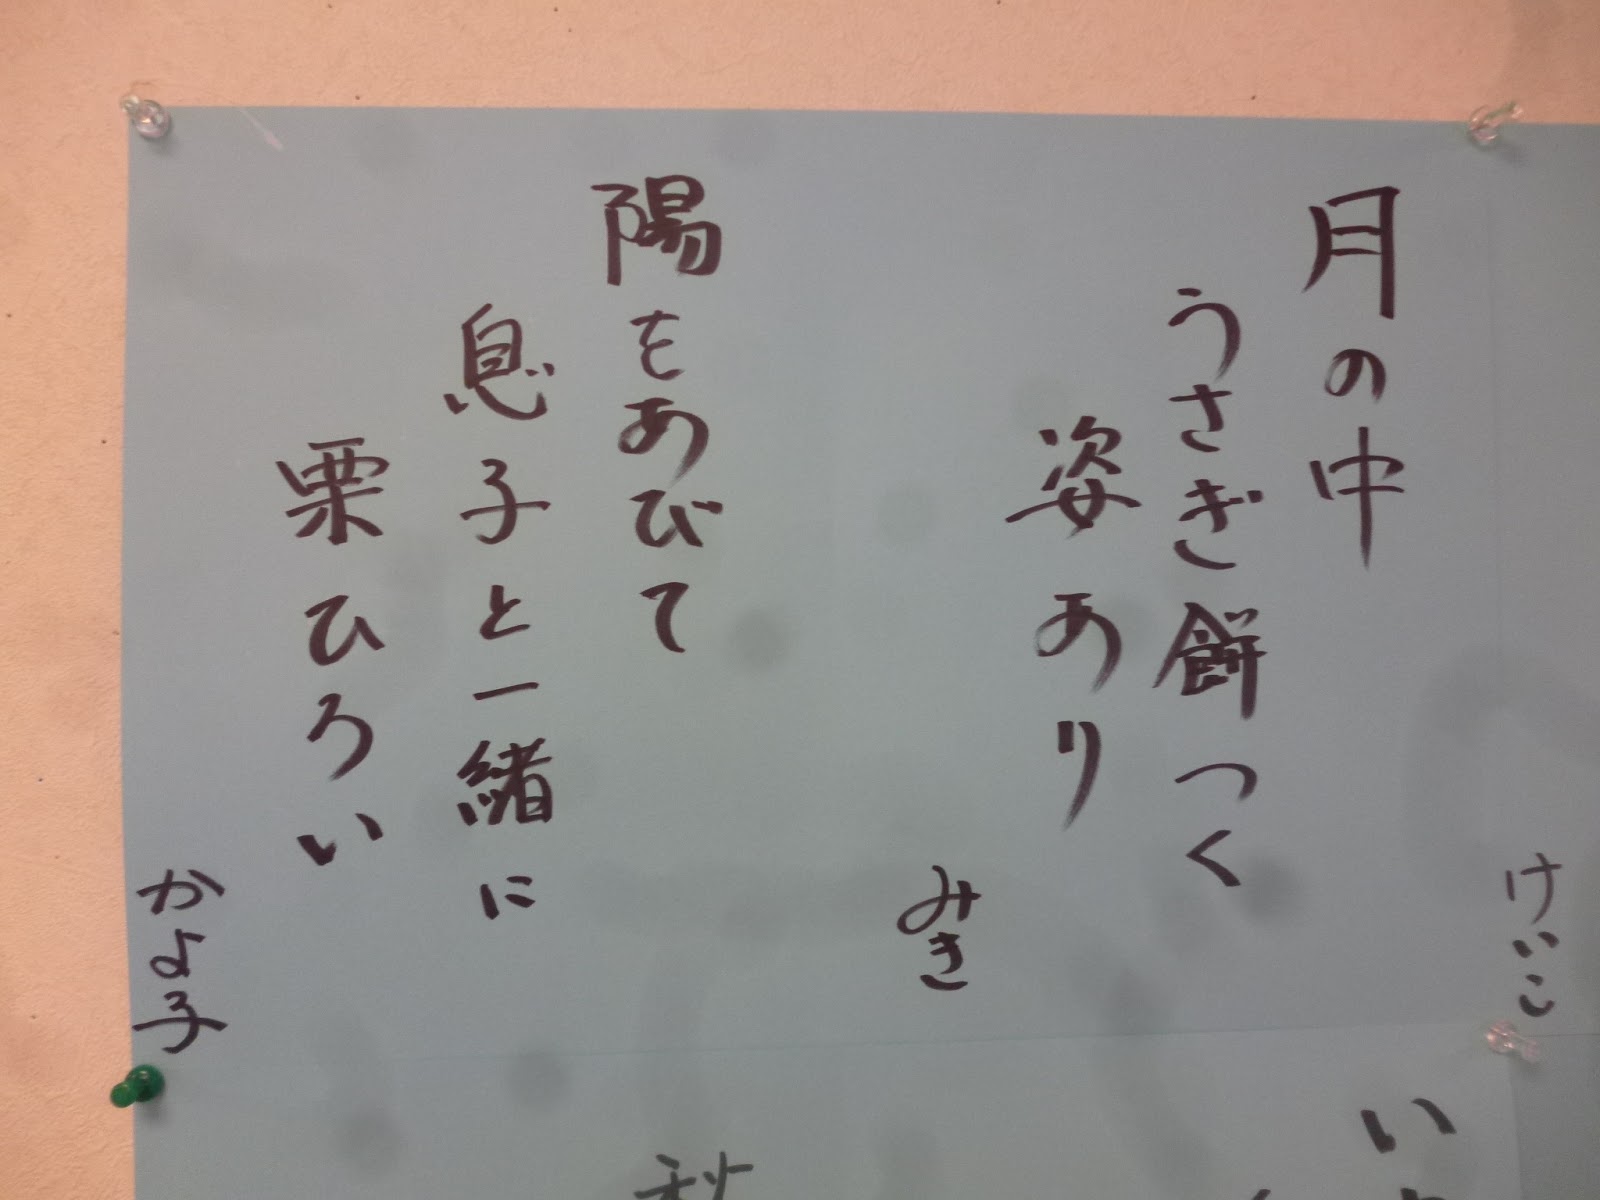 けいこ
月の中
うさぎ餅つく
姿あり
みき
陽をあびて
息子と一緒に
栗ひろい
かよ子
い
秋